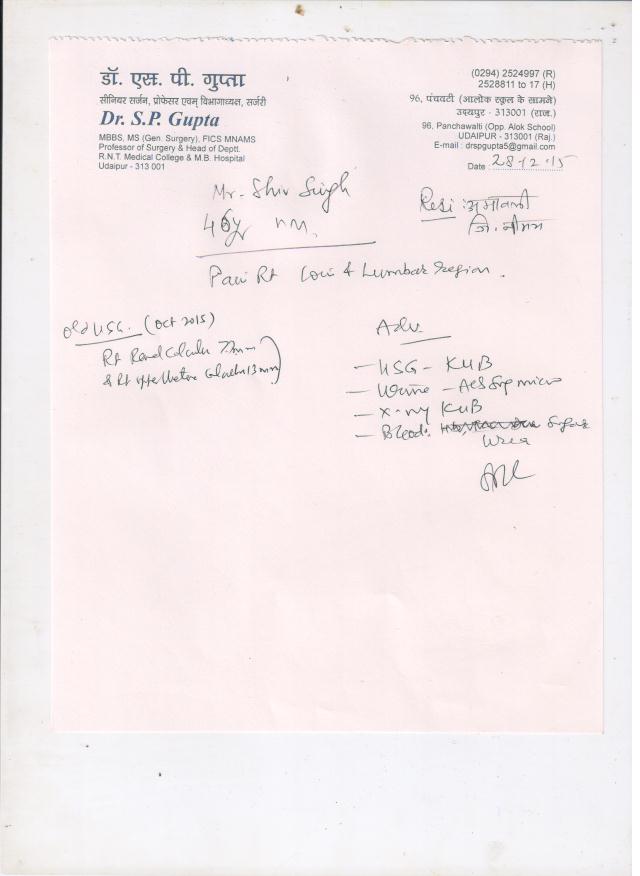 डॉ. एस. पी. गुप्ता
सीनियर सर्जन, प्रोफेसर एवम् विभागाध्यक्ष, सर्जरी
Dr. S.P. Gupta
MBBS, MS (Gen. Surgery), FICS MNAMS
Professor of Surgery & Head of Deptt.
R.N.T. Medical College & M.B. Hospital
Udaipur - 313 001
(0294) 2524997 (R)
2528811 to 17 (H)
96, पंचवटी (आलोक स्कूल के सामने)
उदयपुर - 313001 (राज.)
96, Panchawalti (Opp. Alok School)
UDAIPUR - 313001 (Raj.)
E-mail : drspgupta5@gmail.com
Date : 28-12-15
Mr. Shiv Singh
Resi :
जि.
Pain Rt Loin & Lumbar region.
Old USG. (Oct 2015)
Rt Renal Calculi 7mm
& Rt upper Ureteric Calculi 13mm
Adv.
— USG - KUB
— Urine - micro
— X-ray KUB
— Blood: Sugar
Urea